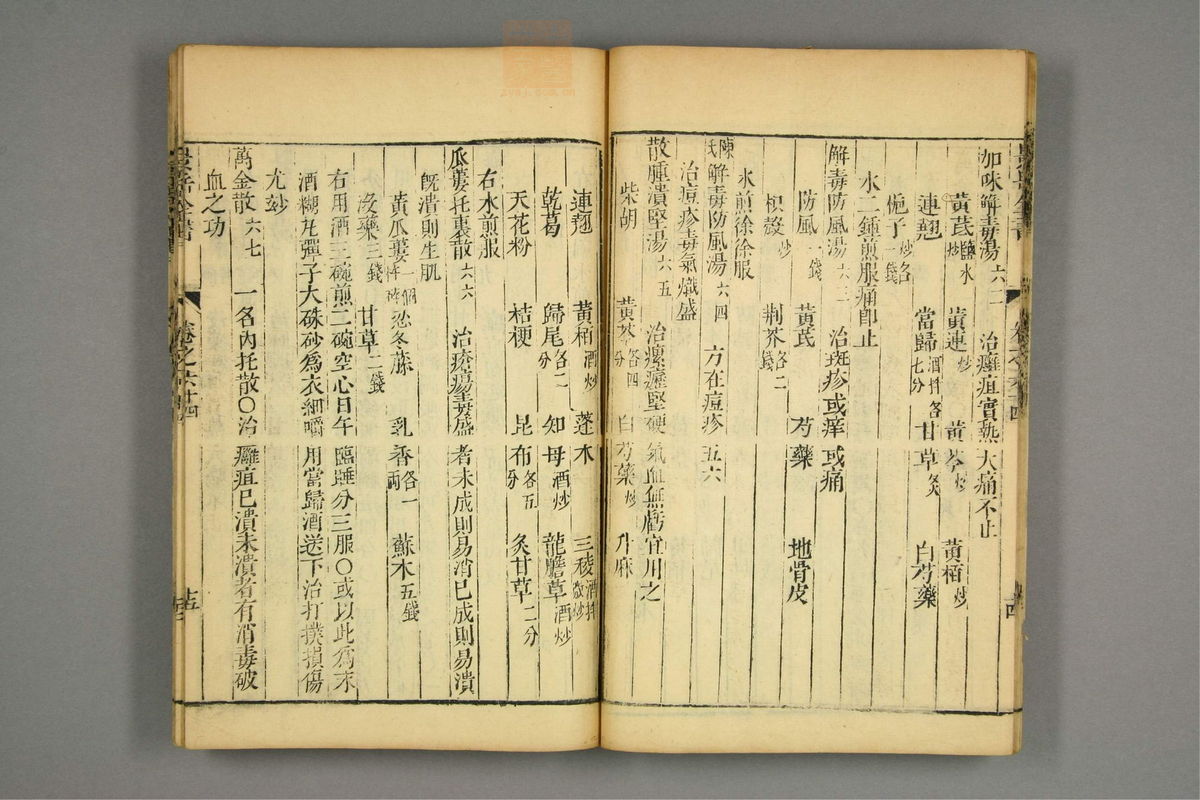 加味解毒湯六二　治癰疽實熱大痛不止
黃芪鹽水炒　黃連炒　黃芩炒　黃栢炒
連翹　當歸酒拌各七分　甘草炙　白芍藥
梔子炒各一錢
水二鍾煎服痛卽止
解毒防風湯六三　治斑疹或痒或痛
防風一錢　黃芪　芍藥　地骨皮
枳殼炒　荆芥各二錢
水煎徐徐服
陳氏解毒防風湯六四　方在痘疹五六
治痘疹毒氣熾盛
散腫潰堅湯六五　治瘰癧堅硬氣血無虧宜用之
柴胡　黃芩各四分　白芍藥炒　升麻
連翹　黃栢酒炒　蓬术　三稜酒拌微炒
乾葛　歸尾各二分　知母酒炒　龍膽草酒炒
天花粉　桔梗　昆布各五分　炙甘草二分
右水煎服
瓜蔞托裏散六六　治瘡瘍毒盛者未成則易消已成則易潰
旣潰則生肌
黃瓜蔞一個杵碎　忍冬藤　乳香各一兩　蘇木五錢
沒藥三錢　甘草二錢
右用酒三碗煎二碗空心日午臨睡分三服○或以此爲末
酒糊丸彈子大硃砂爲衣細嚼用當歸酒送下治打撲損傷
尤玅
萬金散六七　一名內托散○治癰疽已潰未潰者有消毒破
血之功
卷之六十四